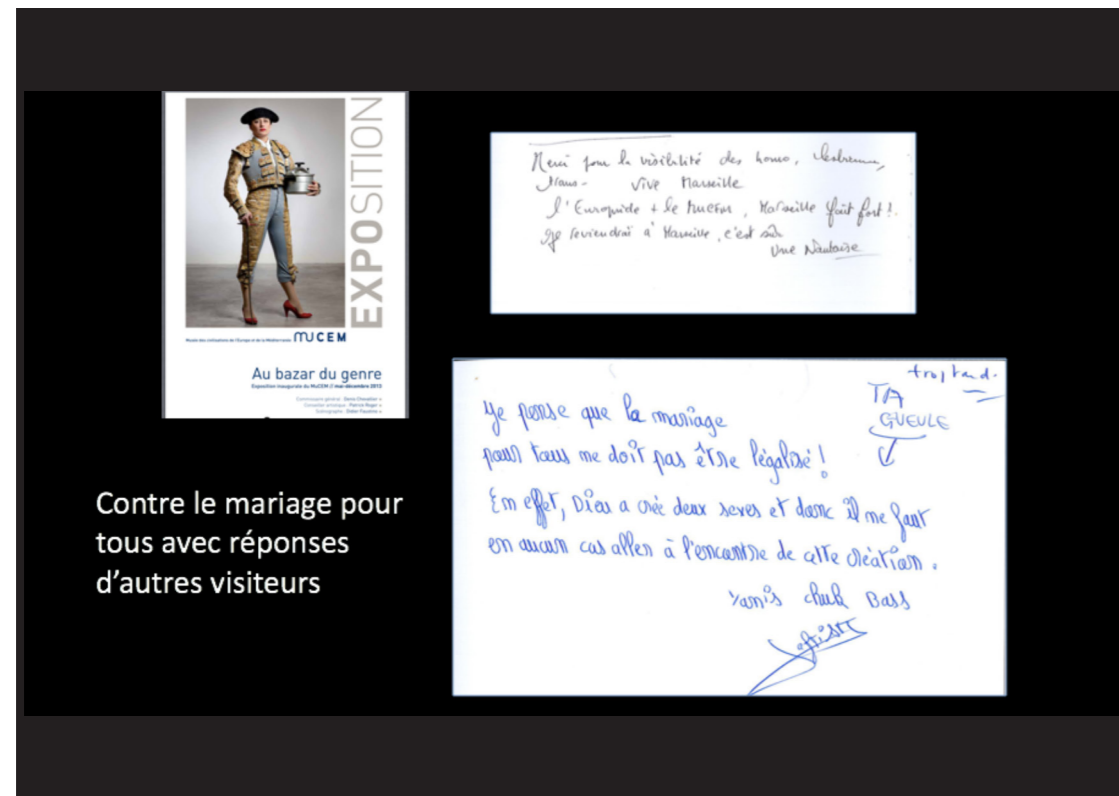 EXPOSITION
Musée des civilisations de l'Europe et de la Méditerranée MUCEM
Au bazar du genre
Exposition inaugurale du MuCEM // mai-décembre 2013
Commissaire général : Denis Chevallier
Conseiller artistique : Patrick Roger
Scénographe : Didier Faustino
Contre le mariage pour
tous avec réponses
d'autres visiteurs
Merci pour la visibilité des homo, lesbienne,
trans - Vive Marseille
l'Europride + le MuCEM, Marseille fait fort !.
Je reviendrai à Marseille, c'est sûr
Une Nantaise
trop tard.
TA
GUEULE
Je pense que la mariage
pour tous ne doit pas être légalisé !
En effet, Dieu a créé deux sexes et donc il ne faut
en aucun cas aller à l'encontre de cette création.
Yanis Bass